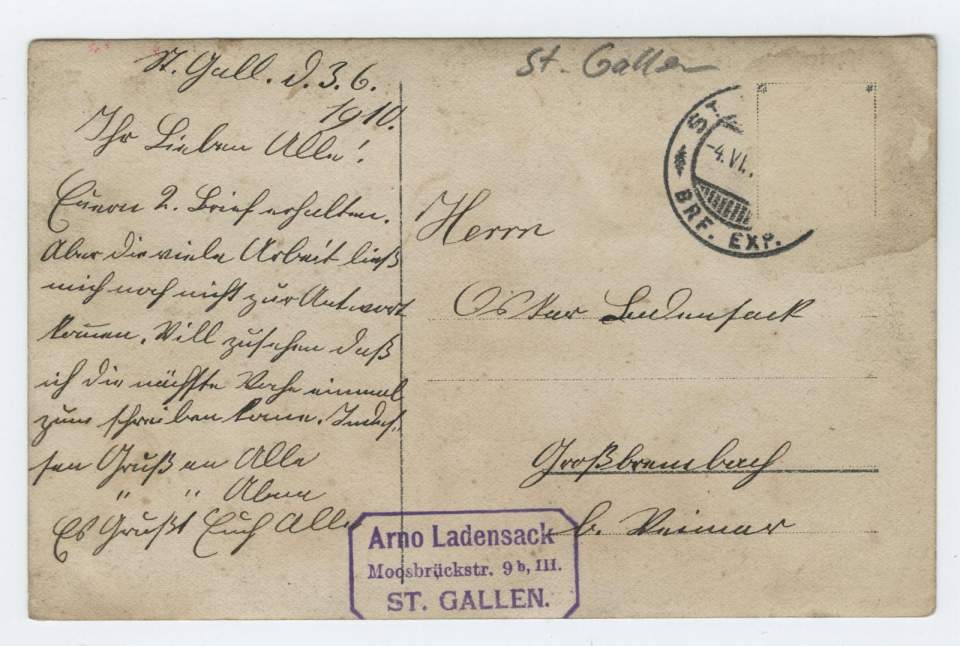 St. Gallen
St. Gall. d. 3. 6.
1910.
Ihr Lieben Alle!
Euern 2. Brief erhalten.
Aber die viele Arbeit ließ
mich noch nicht zur Antwort
kommen. Will zusehen daß
ich die nächste Woche einmal
zum schreiben kome. Indes-
sen Gruß an Alle
" " Alma
Es Grüßt Euch Alle
Arno Ladensack
Moosbrückstr. 9b, III.
ST. GALLEN.
ST.
-4.VI.
BRF. EXP.
Herrn
Oskar Ladensack
Großbrembach
b. Weimar